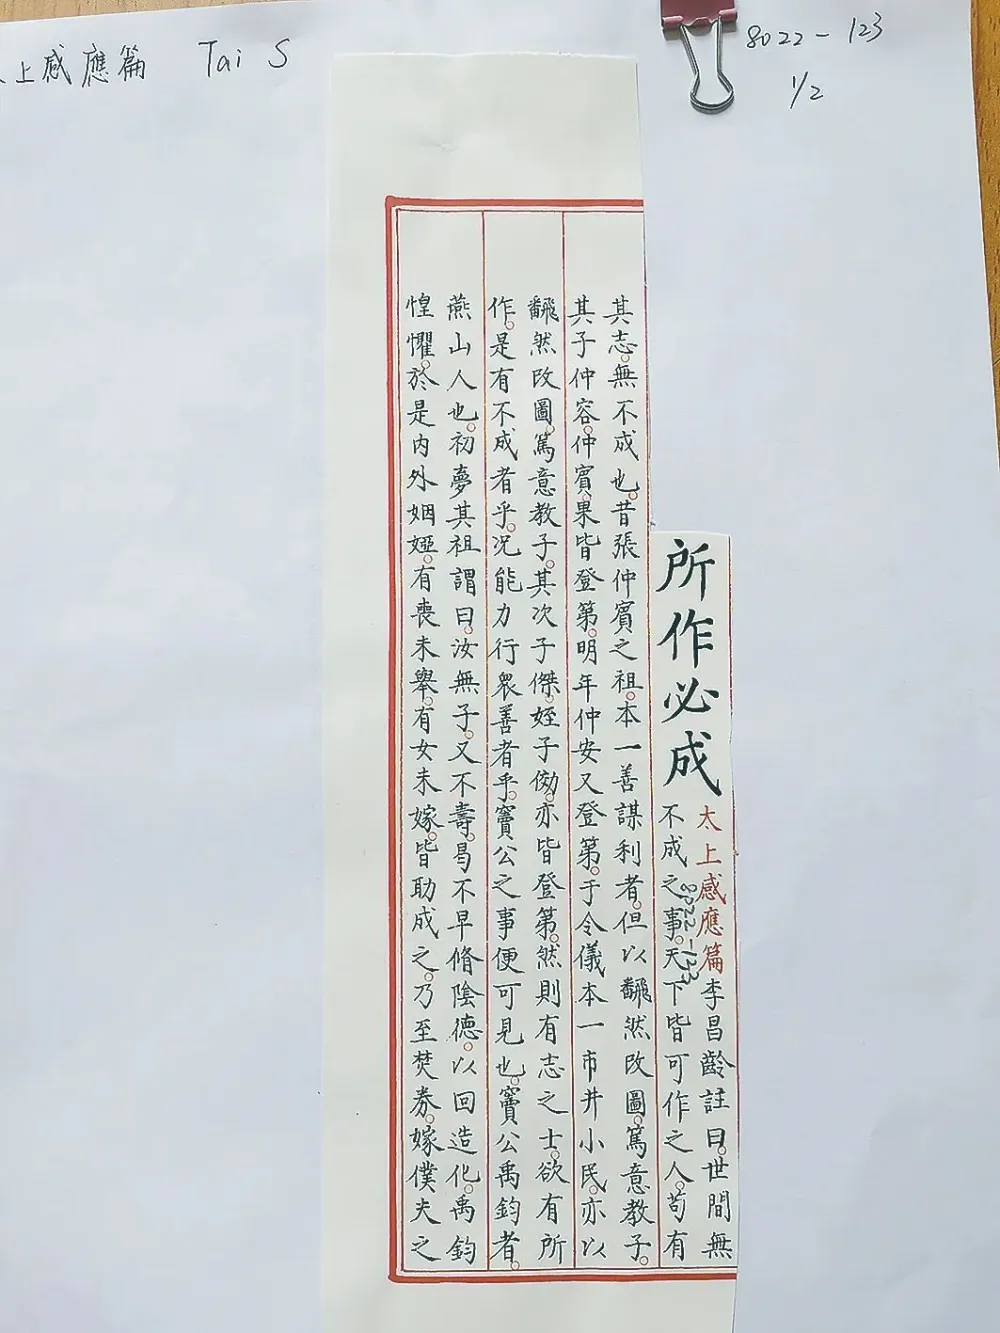 上感應篇 Tai S
8022-123
1/2
所作必成
太上感應篇李昌齡註曰。世間無
不成之事。天下皆可作之人。苟有
8022-123
其志。無不成也。昔張仲賔之祖。本一善謀利者。但以飜然改圖。篤意教子。
其子仲容。仲賔。果皆登第。明年仲安又登第。于令儀本一市井小民。亦以
飜然改圖。篤意教子。其次子傑。姪子俲。亦皆登第。然則有志之士。欲有所
作。是有不成者乎。況能力行衆善者乎。竇公之事便可見也。竇公禹鈞者。
燕山人也。初夢其祖謂曰。汝無子。又不壽。曷不早脩陰德。以回造化。禹鈞
惶懼。於是内外姻婭。有喪未舉。有女未嫁。皆助成之。乃至焚券。嫁僕夫之